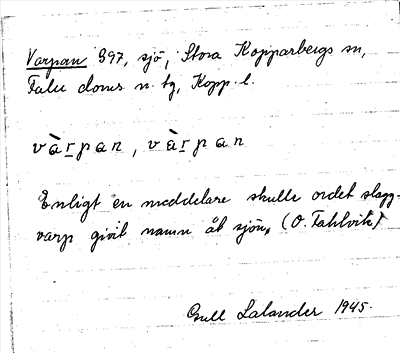 Varpan 897, sjö, Stora Kopparbergs sn,
Falu doms n. tg, Kopp. l.
vàrpan, vàrpan
Enligt en meddelare skulle ordet slagg-
varp givit namn åt sjön. (O. Fahlvik)
Gull Lalander 1945.